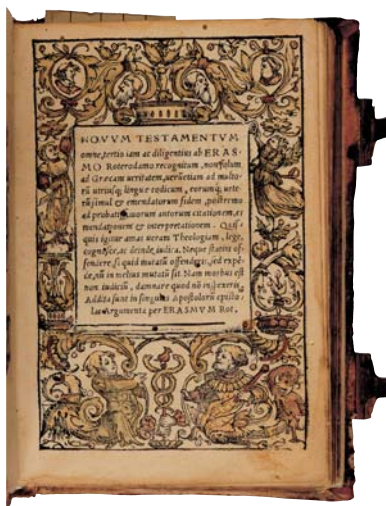 NOVVM TESTAMENTVM
omne, tertio iam ac diligentius ab ERAS-
MO Roterodamo recognitum, non solum
ad Græcam ueritatem, uerūetiam ad multo-
rū utriusq; linguæ codicum, eorumq; uete-
rū simul & emendatorum fidem, postremo
ad probatissimorum autorum citationem, e-
mendationem & interpretationem. Quis-
quis igitur amas ueram Theologiam, lege,
cognosce, ac deinde iudica. Neque statim of-
fendere, si quid mutatū offenderis, sed expē-
de, nū in melius mutatū sit. Nam morbus est
non iudiciū, damnare quod nō inspexeris.
Addita sunt in singulas Apostolorū episto-
las Argumenta per ERASMVM Rot.